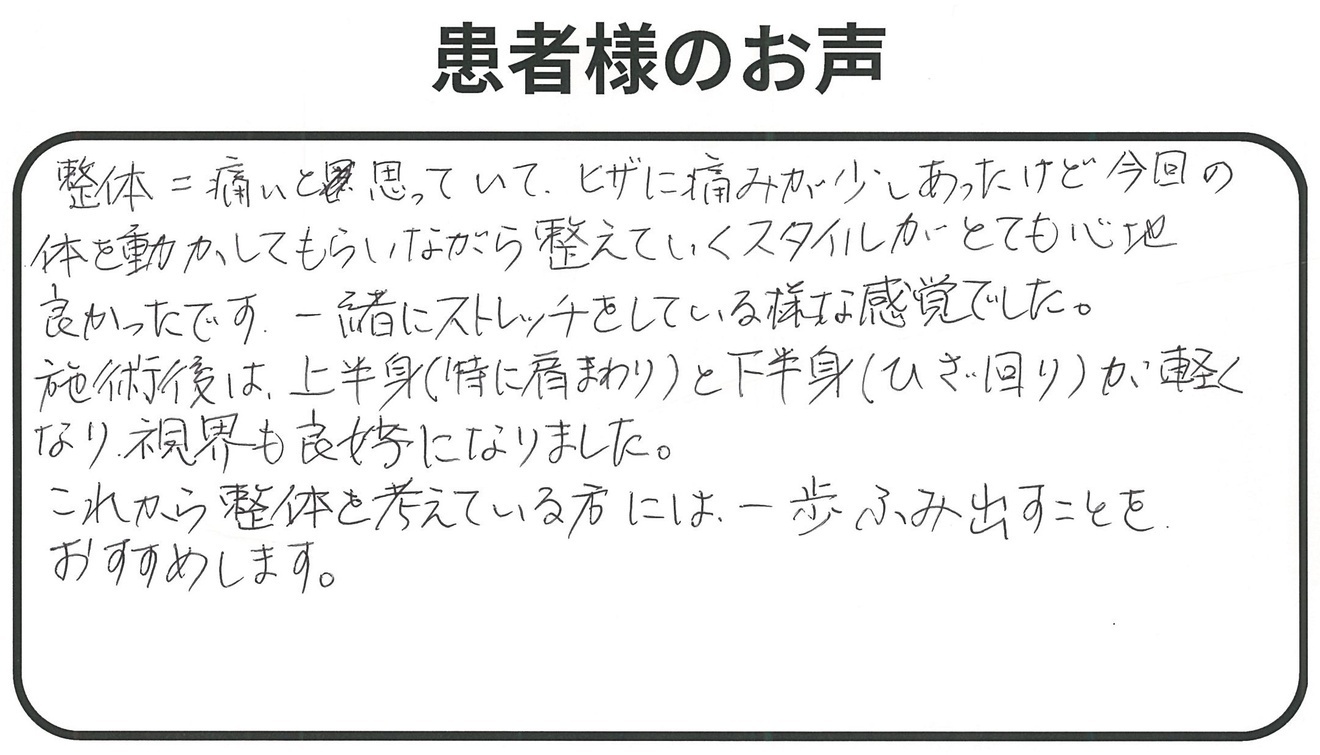 患者様のお声
整体=痛いと思っていて、ヒザに痛みが少しあったけど今回の
体を動かしてもらいながら整えていくスタイルがとても心地
良かったです。一緒にストレッチをしている様な感覚でした。
施術後は、上半身(特に肩まわり)と下半身(ひざ回り)が軽く
なり、視界も良好になりました。
これから整体を考えている方には、一歩ふみ出すことを
おすすめします。